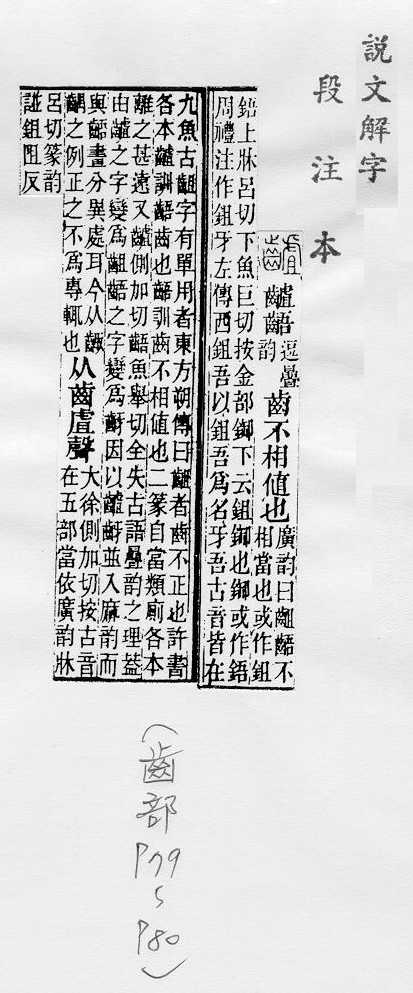 說文解字
段注本
䶥齬
逗疊
韵
齒不相值也
廣韵曰齟齬不
相當也或作鉏
鋙上牀呂切下魚巨切按金部䥏下云鉏䥏也䥏或作鋙
周禮注作鉏牙左傳西鉏吾以鉏吾爲名牙吾古音皆在
九魚古齟字有單用者東方朔傳曰䶥者齒不正也許書
各本䶥訓齬齒也齬訓齒不相値也二篆自當類廁各本
離之甚遠又䶥側加切齬魚舉切全失古語疊韵之理葢
由䶥之字變爲齟齬之字變爲齖因以䶥齖並入麻韵而
與齬畫分異處耳今从
之例正之不爲專輒也
从齒虘聲
大徐側加切按古音
在五部當依廣韵牀
呂切篆韵
誌鉏阻反
(齒部
P79
~
P80)